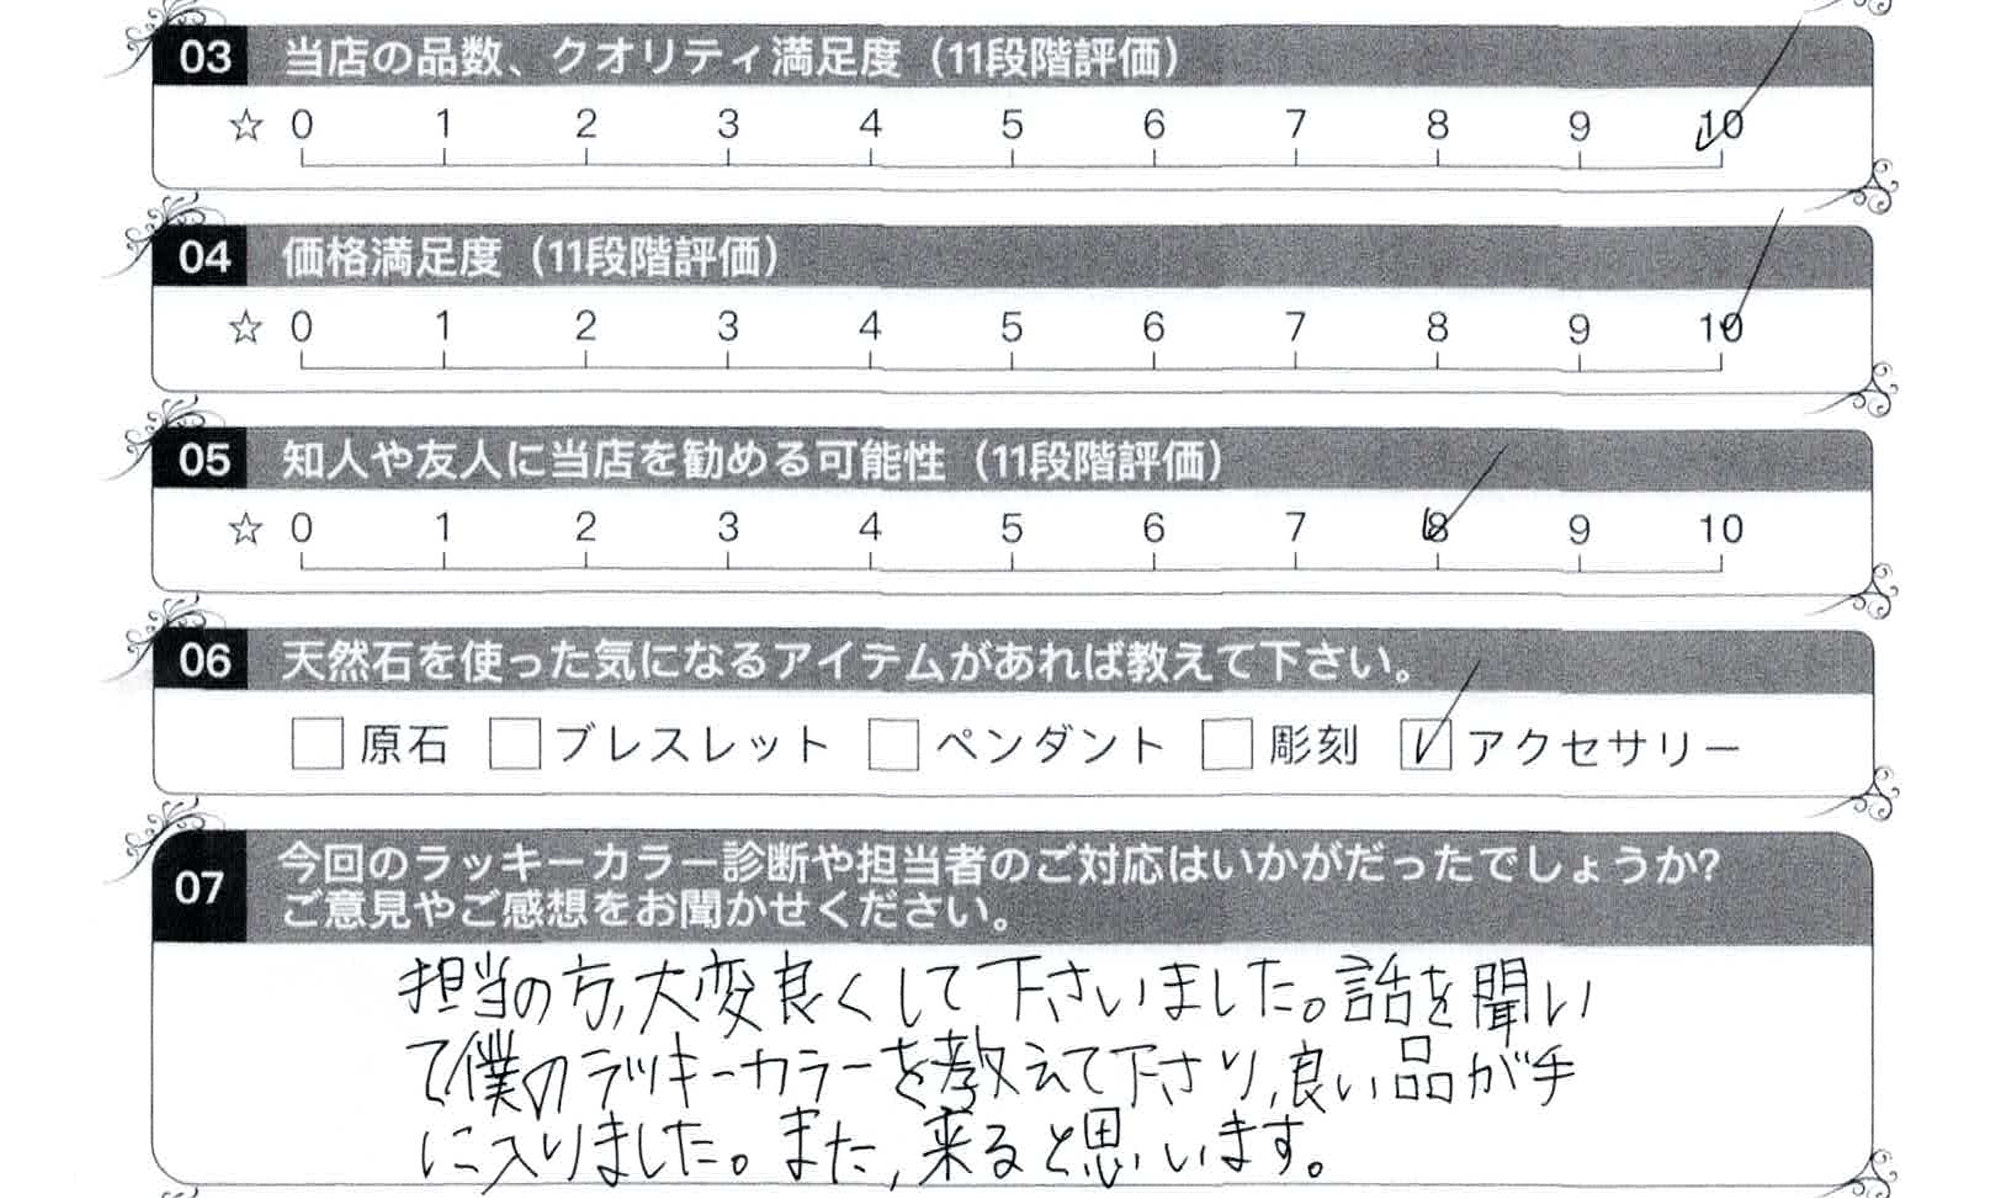 03 当店の品数、クオリティ満足度（11段階評価）
☆ 0 1 2 3 4 5 6 7 8 9 10
04 価格満足度（11段階評価）
☆ 0 1 2 3 4 5 6 7 8 9 10
05 知人や友人に当店を勧める可能性（11段階評価）
☆ 0 1 2 3 4 5 6 7 8 9 10
06 天然石を使った気になるアイテムがあれば教えて下さい。
原石 ブレスレット ペンダント 彫刻 アクセサリー
07 今回のラッキーカラー診断や担当者のご対応はいかがだったでしょうか?
ご意見やご感想をお聞かせください。
担当の方,大変良くして下さいました。話を聞い
て僕のラッキーカラーを教えて下さり,良い品が手
に入りました。また,来ると思います。